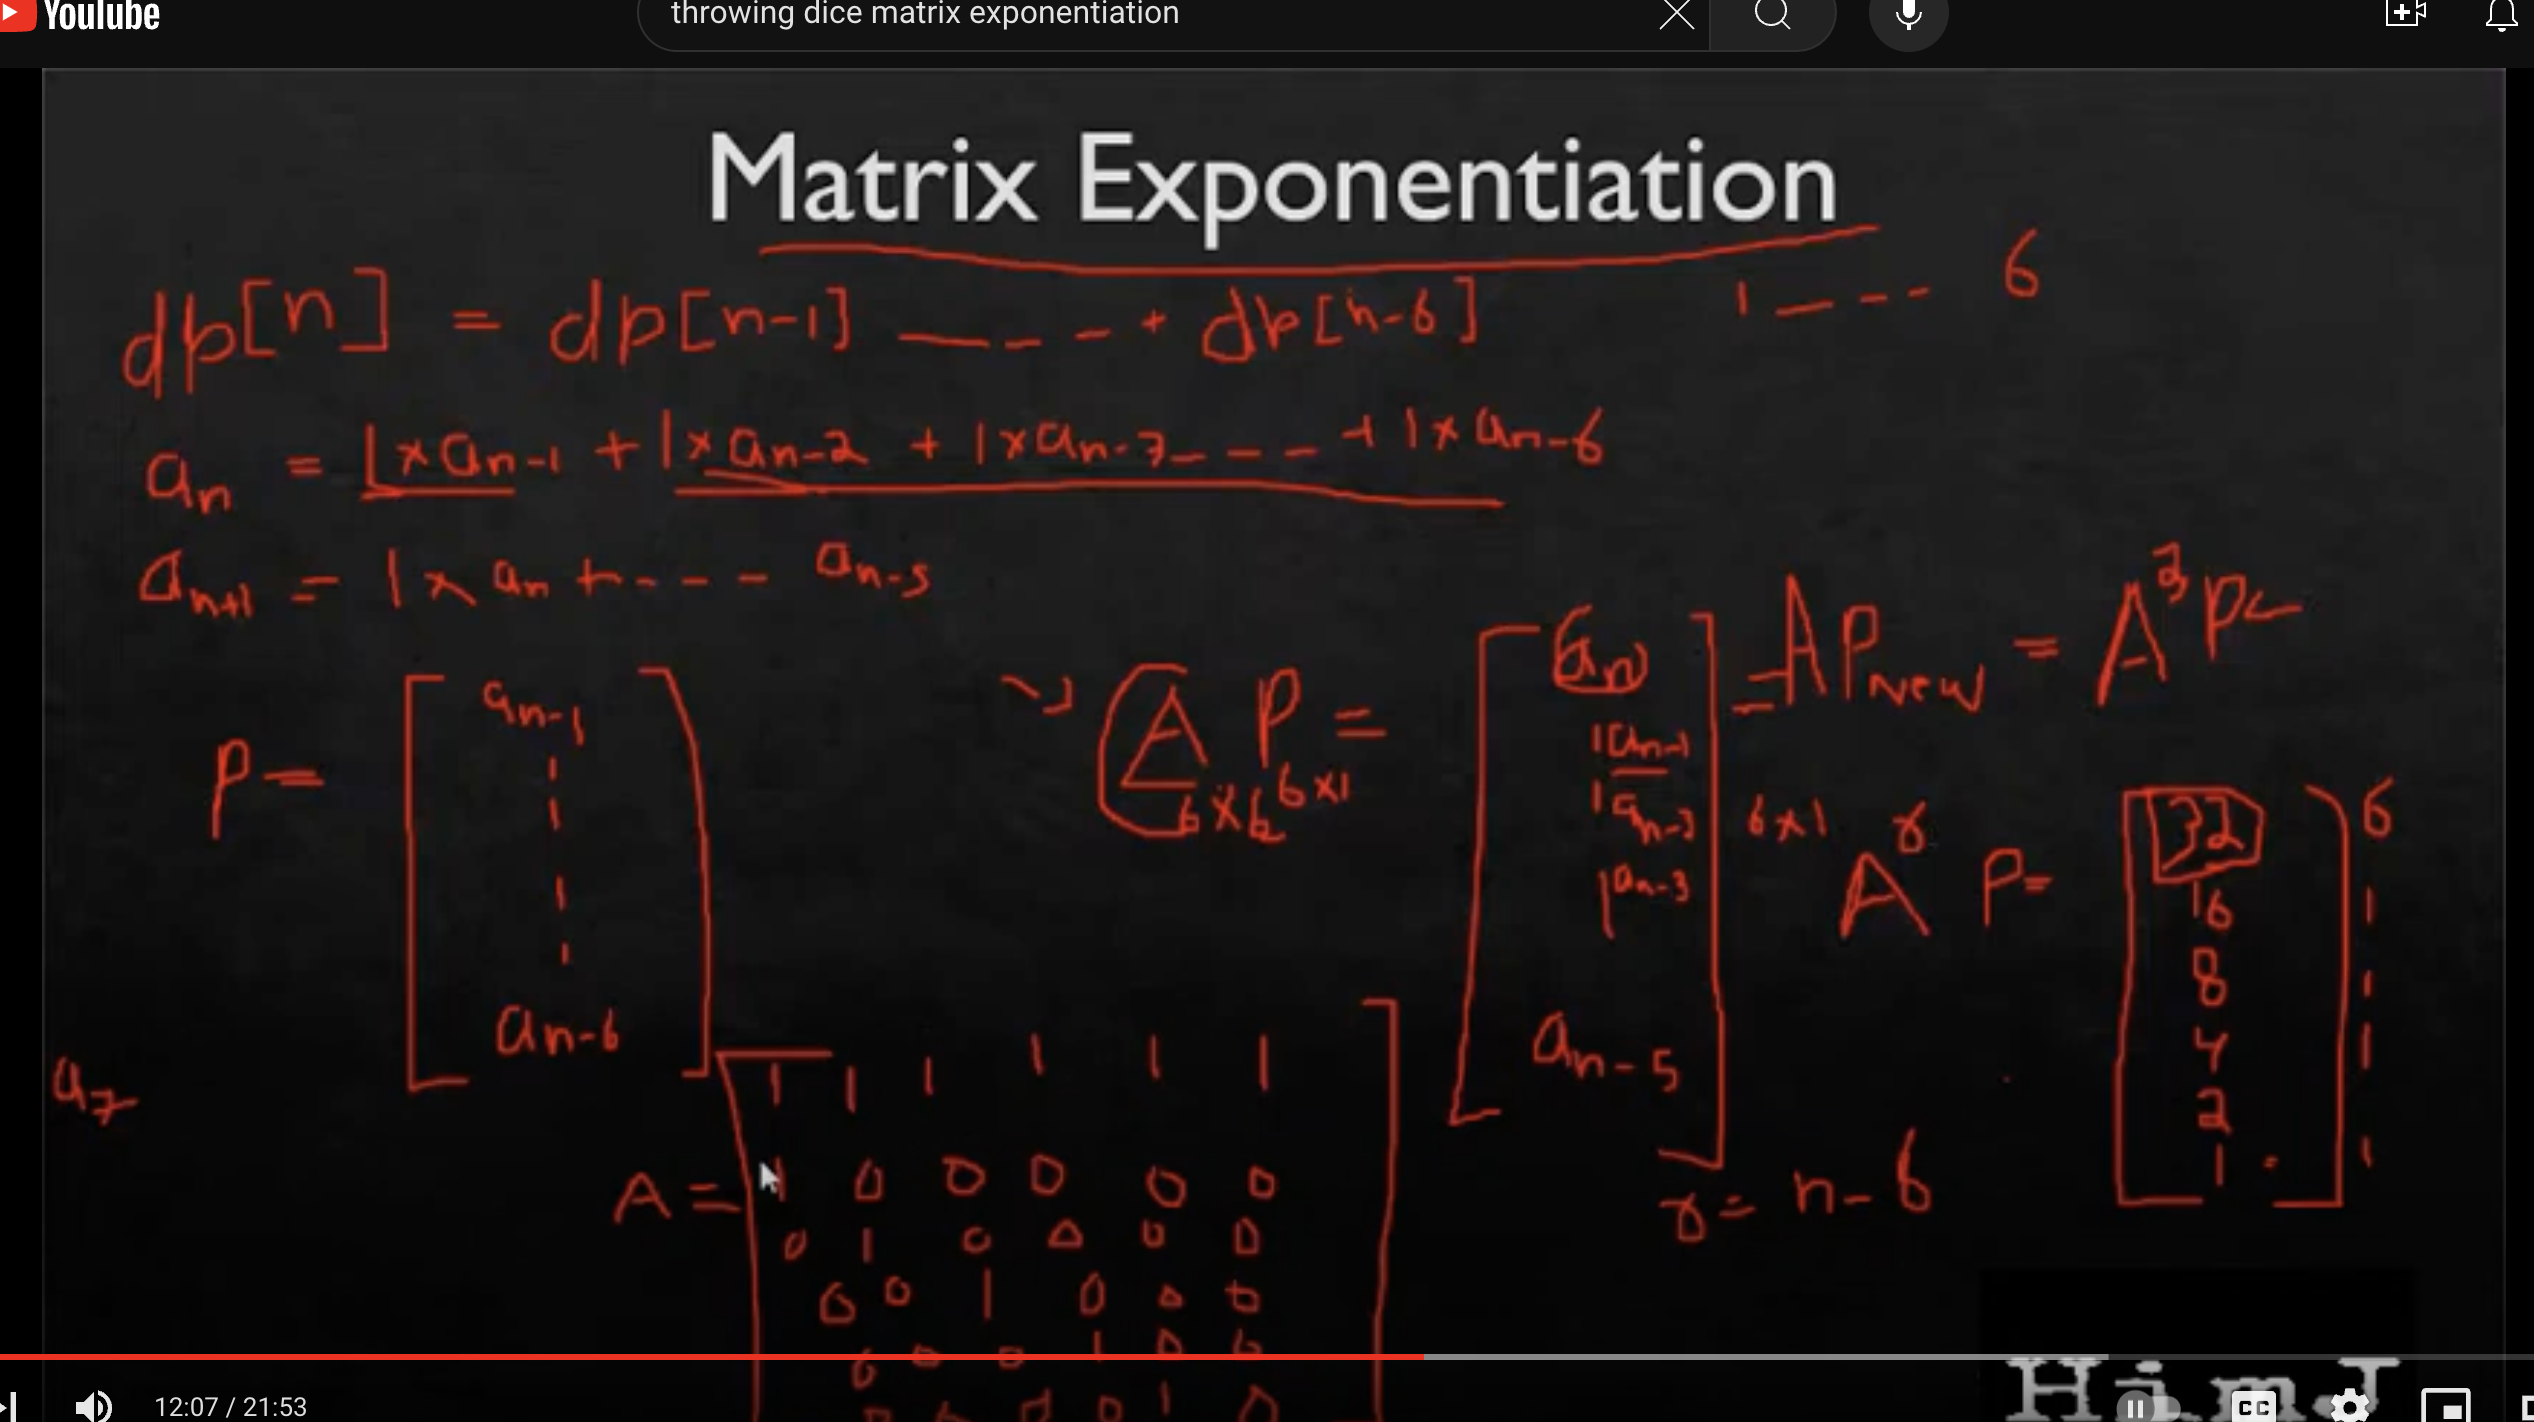 YouTube
throwing dice matrix exponentiation
Matrix Exponentiation
dp[n] = dp[n-1] ---- + dp[n-6]
1 ---- 6
an = 1×an-1 + 1×an-2 + 1×an-3 --- + 1×an-6
an+1 = 1×an + --- an-5
P = [an-1
an-6]
A P =
6×6 6×1
[an
1an-1
1an-2
1an-3
an-5]
6×1
= A PNew = A² P
Aʳ P = [32
16
8
4
2
1]
6
1
r = n-6
a7
A = [1 1 1 1 1 1
1 0 0 0 0 0
0 1 0 0 0 0
0 0 1 0 0 0
0 0 0 1 0 0
0 0 0 0 1 0]
HimJ
12:07 / 21:53
CC